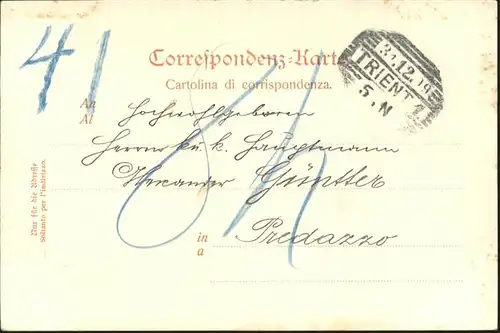 41
Correspondenz-Karte
Cartolina di corrispondenza.
TRIENT 1
5. N
An Hochwohlgeboren
Al
Herrn k. u. k. Hauptmann
Alexander Günther
in Predazzo
a
Nur für die Adresse
Soltanto per l'indirizzo.